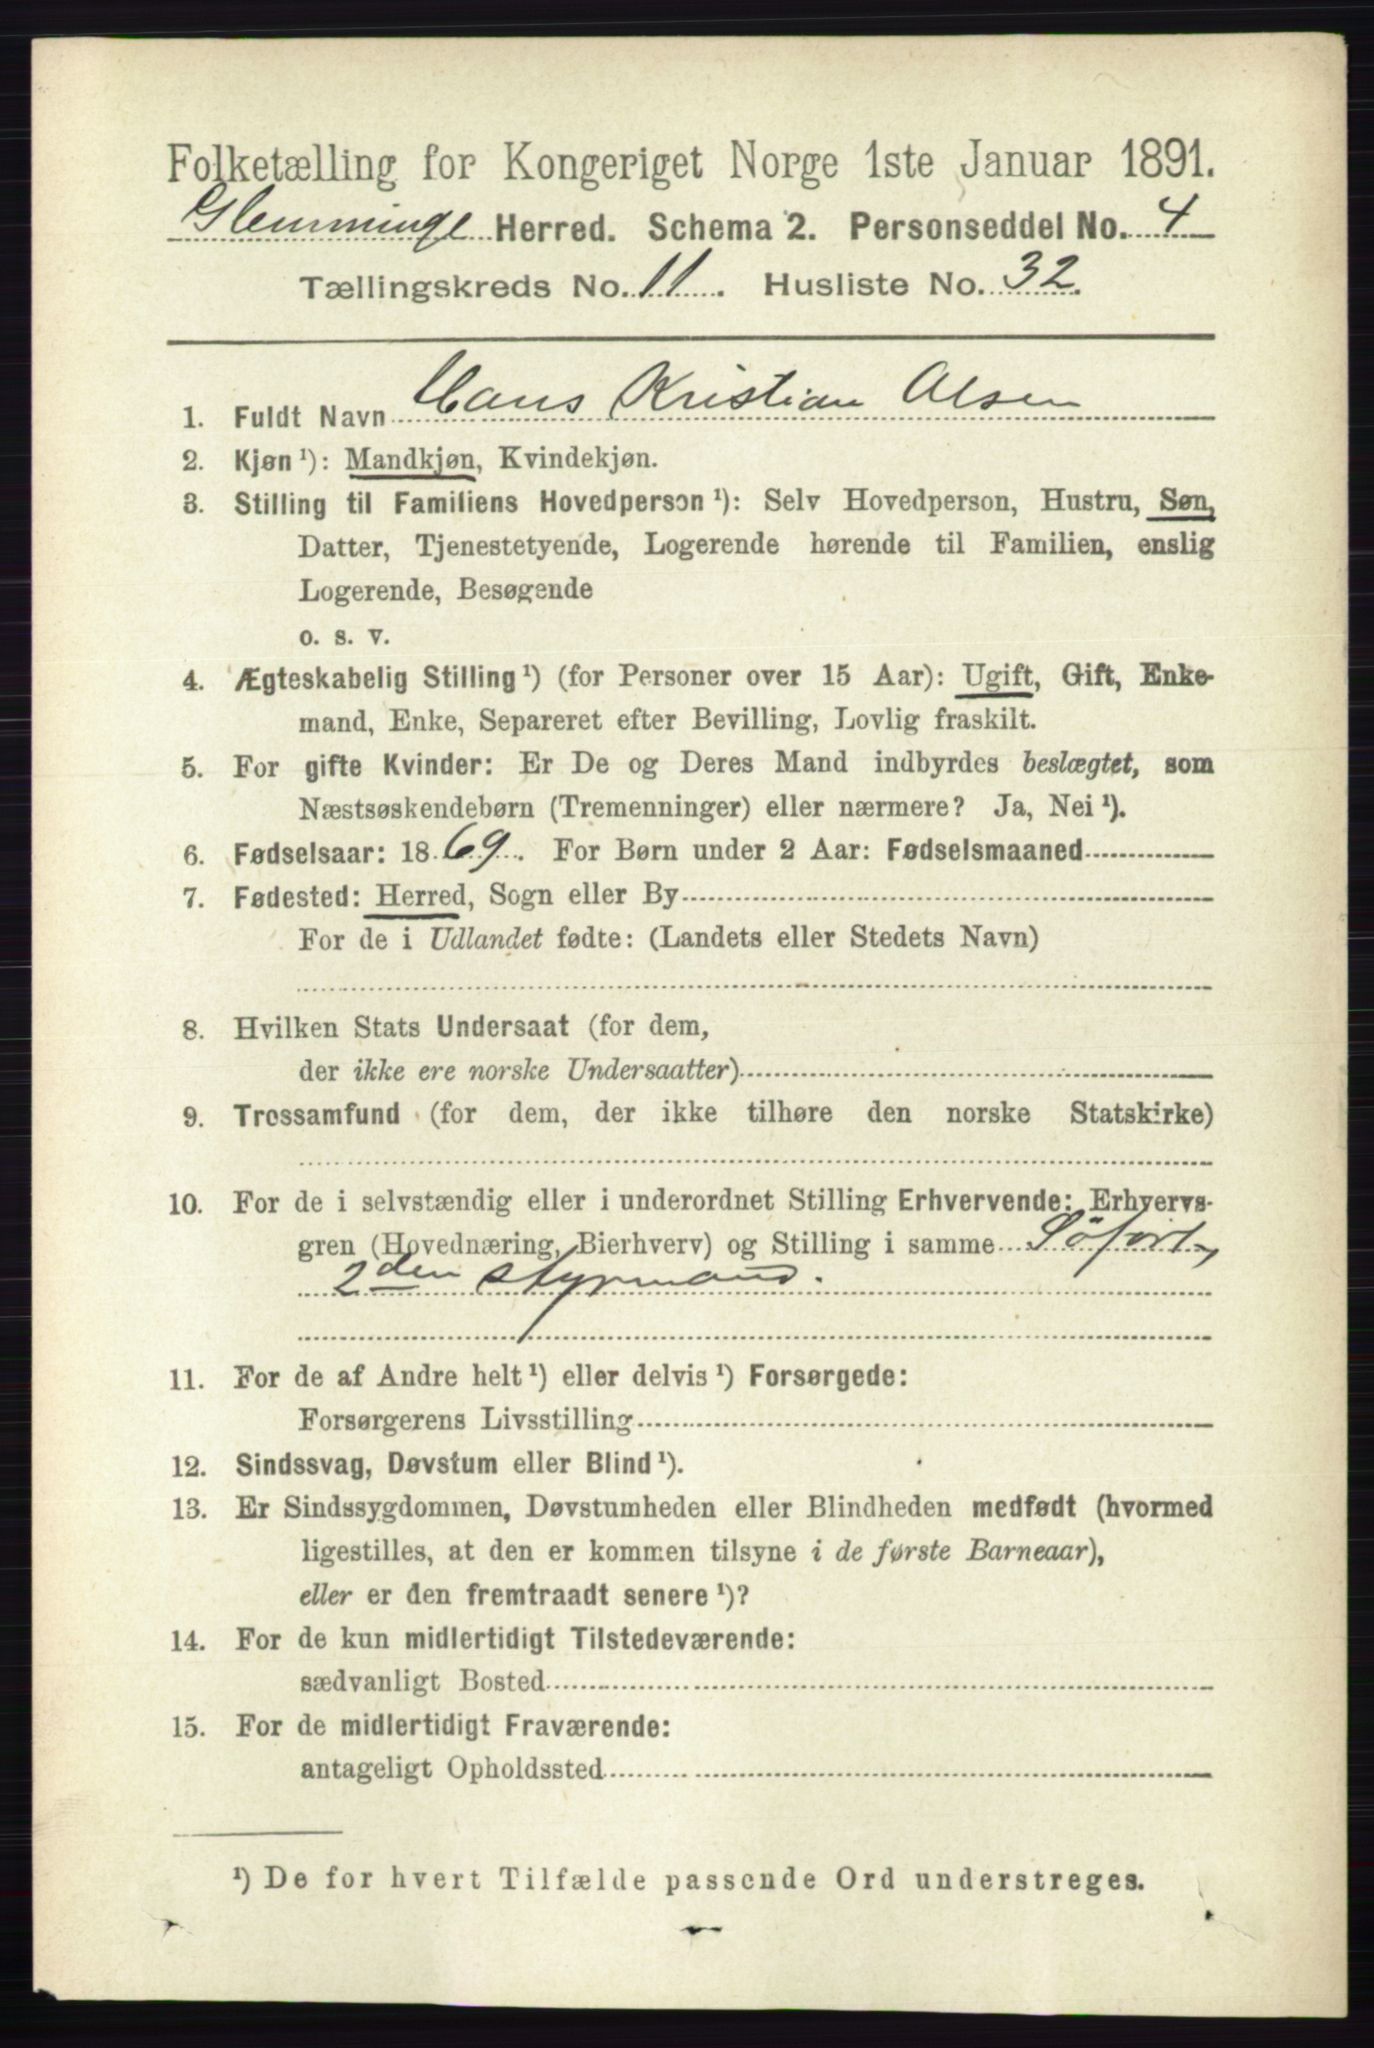 Folketælling for Kongeriget Norge 1ste Januar 1891.
Glemminge Herred. Schema 2. Personseddel No. 4
Tællingskreds No. 11. Husliste No. 32.
1. Fuldt Navn Hans Kristian Olsen
2. Kjøn ¹): Mandkjøn, Kvindekjøn.
3. Stilling til Familiens Hovedperson ¹): Selv Hovedperson, Hustru, Søn,
Datter, Tjenestetyende, Logerende hørende til Familien, enslig
Logerende, Besøgende
o. s. v.
4. Ægteskabelig Stilling ¹) (for Personer over 15 Aar): Ugift, Gift, Enke-
mand, Enke, Separeret efter Bevilling, Lovlig fraskilt.
5. For gifte Kvinder: Er De og Deres Mand indbyrdes beslægtet, som
Næstsøskendebørn (Tremenninger) eller nærmere? Ja, Nei ¹).
6. Fødselsaar: 1869. For Børn under 2 Aar: Fødselsmaaned
7. Fødested: Herred, Sogn eller By
For de i Udlandet fødte: (Landets eller Stedets Navn)
8. Hvilken Stats Undersaat (for dem,
der ikke ere norske Undersaatter)
9. Trossamfund (for dem, der ikke tilhøre den norske Statskirke)
10. For de i selvstændig eller i underordnet Stilling Erhvervende: Erhvervs-
gren (Hovednæring, Bierhverv) og Stilling i samme Söfart,
2den styrmand.
11. For de af Andre helt ¹) eller delvis ¹) Forsørgede:
Forsørgerens Livsstilling
12. Sindssvag, Døvstum eller Blind ¹).
13. Er Sindssygdommen, Døvstumheden eller Blindheden medfødt (hvormed
ligestilles, at den er kommen tilsyne i de første Barneaar),
eller er den fremtraadt senere ¹)?
14. For de kun midlertidigt Tilstedeværende:
sædvanligt Bosted
15. For de midlertidigt Fraværende:
antageligt Opholdssted
¹) De for hvert Tilfælde passende Ord understreges.